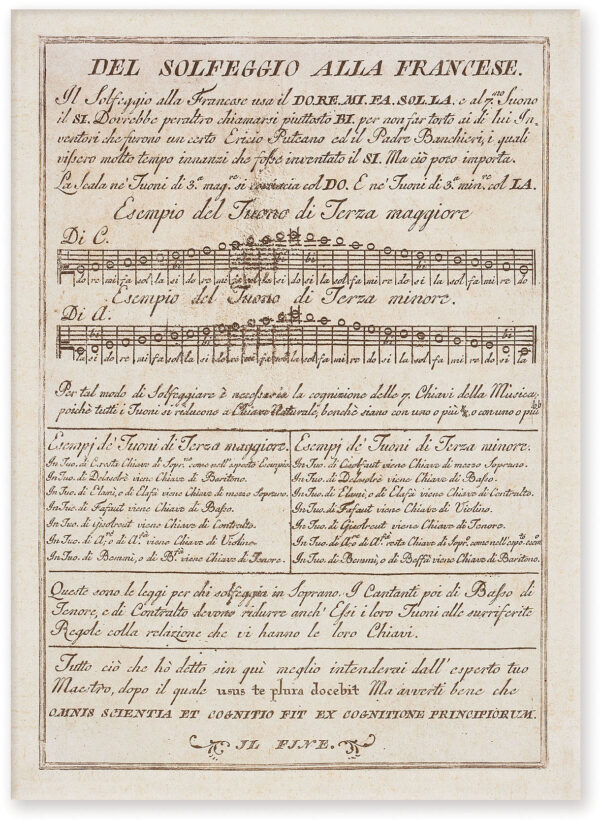 DEL SOLFEGGIO ALLA FRANCESE.
Il Solfeggio alla Francese usa il DO. RE. MI. FA. SOL. LA. e al 7.mo Suono
il SI. Dovrebbe peraltro chiamarsi piuttosto BI. per non far torto ai di lui In-
ventori che furono un certo Ericio Puteano ed il Padre Banchieri, i quali
vissero molto tempo innanzi che fosse inventato il SI. Ma ciò poco importa.
La Scala ne' Tuoni di 3.a mag.re si comincia col DO. E ne' Tuoni di 3.a min.re col LA.
Esempio del Tuono di Terza maggiore
Di C.
do re mi fa sol la si do re mi fa sol la si do si la sol fa mi re do si la sol fa mi re do
Esempio del Tuono di Terza minore.
Di A.
la si do re mi fa sol la si do re mi fa sol la sol fa mi re do si la sol fa mi re do si la
Per tal modo di Solfeggiare è necessaria la cognizione delle 7. Chiavi della Musica,
poichè tutti i Tuoni si riducono a Chiave Naturale, benchè siano con uno o più #, o con uno o più b
Esempj de' Tuoni di Terza maggiore.
In Tuo. di C. resta Chiave di Sopr.no come nell'esposto Esempio
In Tuo. di Delasolrè viene Chiave di Baritono.
In Tuo. di Elami, o di Elafà viene Chiave di mezzo Soprano.
In Tuo. di Fafaut viene Chiave di Basso.
In Tuo. di Gisolreut viene Chiave di Contralto.
In Tuo. di A.re, o di A.fà viene Chiave di Violino.
In Tuo. di Bemmi, o di B.fà viene Chiave di Tenore.
Esempj de' Tuoni di Terza minore.
In Tuo. di Cisolfaut viene Chiave di mezzo Soprano.
In Tuo. di Delasolrè viene Chiave di Basso.
In Tuo. di Elami, o di Elafà viene Chiave di Contralto.
In Tuo. di Fafaut viene Chiave di Violino.
In Tuo. di Gisolreut viene Chiave di Tenore.
In Tuo. di A.re o di A.fà resta Chiave di Sopr.
In Tuo. di Bemmi, o di Beffà viene Chiave di Baritono.
Queste sono le leggi per chi solfeggia in Soprano. I Cantanti poi di Basso di
Tenore, e di Contralto devono ridurre anch' Essi i loro Tuoni alle surriferite
Regole colla relazione che vi hanno le loro Chiavi.
Tutto ciò che hò detto sin quì meglio intenderai dall' esperto tuo
Maestro, dopo il quale usus te plura docebit Ma avverti bene che
OMNIS SCIENTIA ET COGNITIO FIT EX COGNITIONE PRINCIPIORUM.
IL FINE.